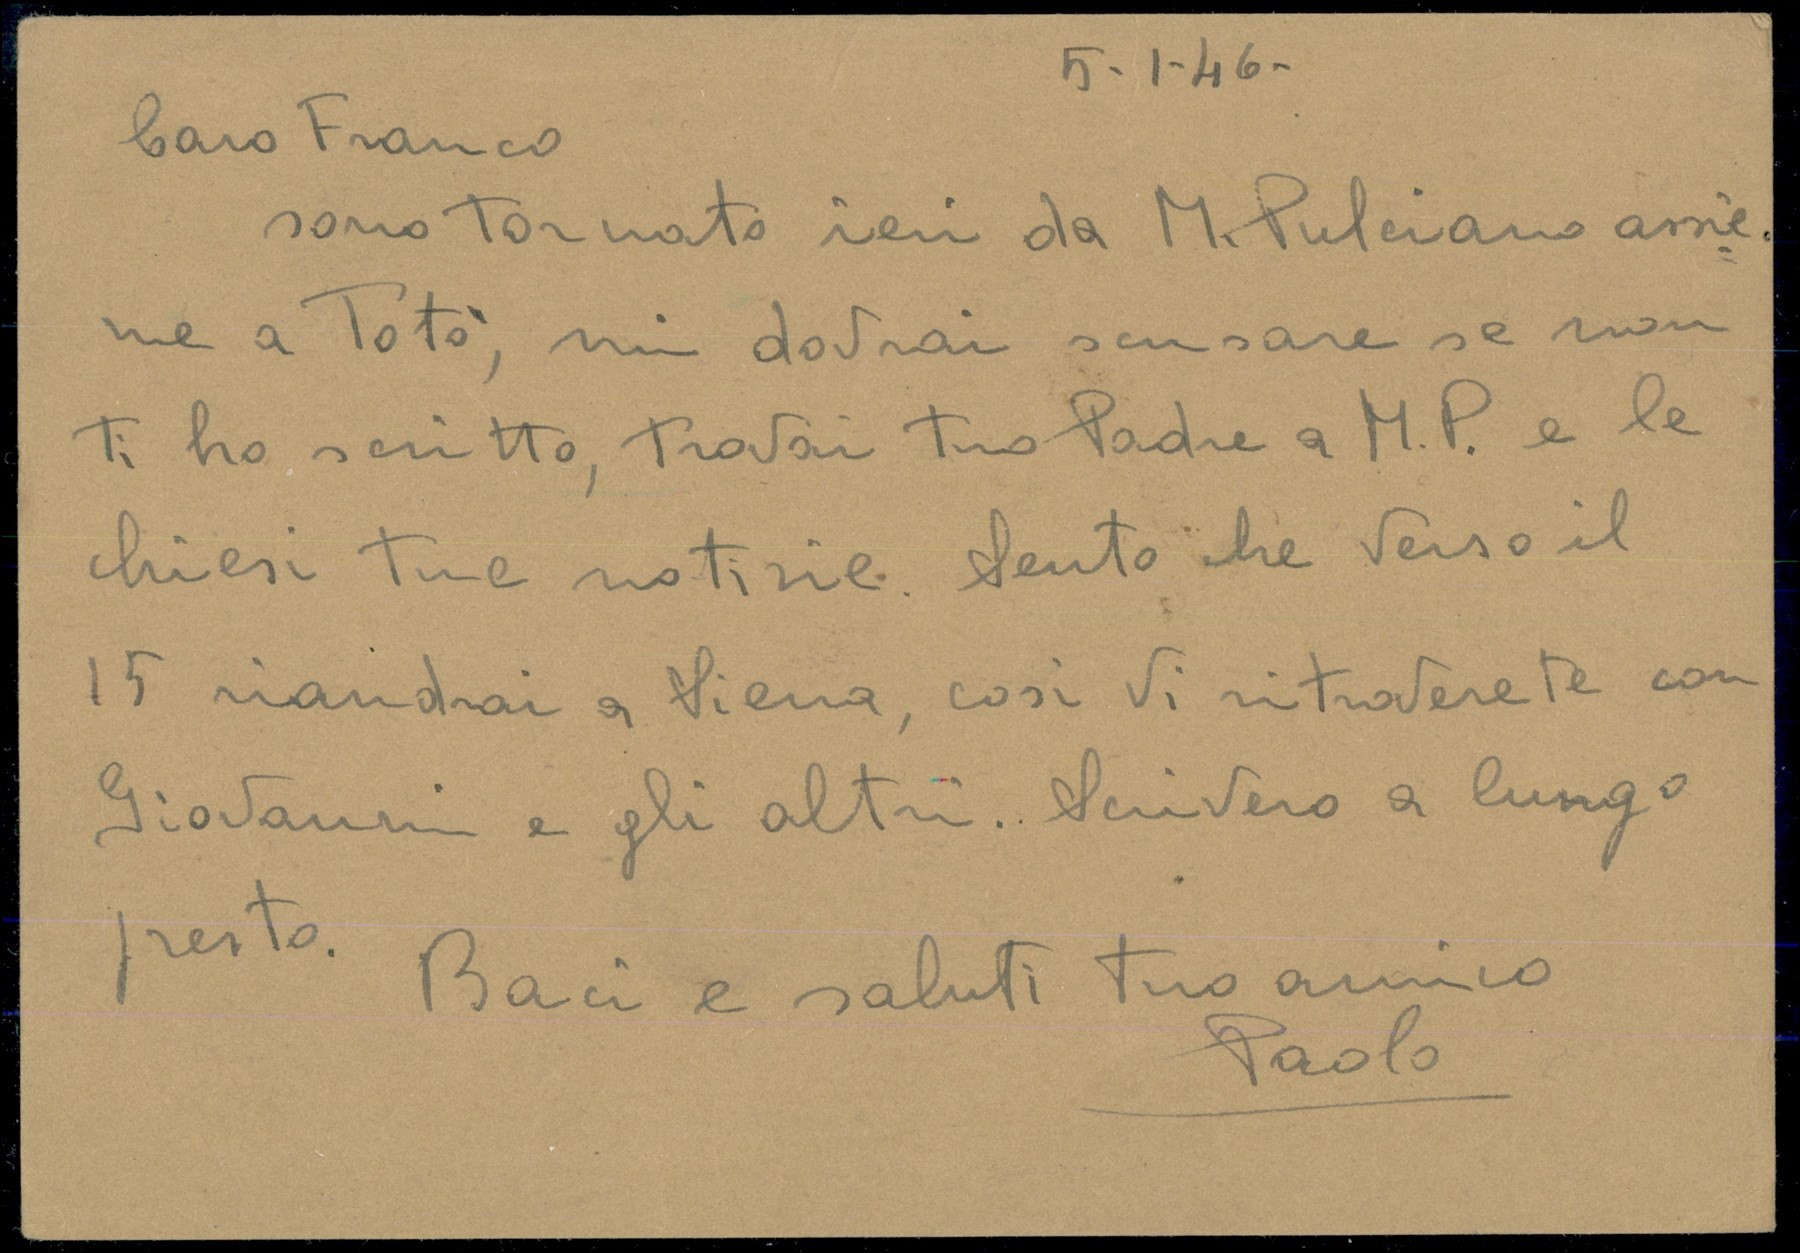 5-1-46-
Caro Franco
sono tornato ieri da M. Pulciano assie=
me a Totò, mi dovrai scusare se non
ti ho scritto, trovai tuo Padre a M.P. e le
chiesi tue notizie. Sento che verso il
15 riandrai a Siena, così vi ritroverete con
Giovanni e gli altri. Scriverò a lungo
presto.
Baci e saluti tuo amico
Paolo